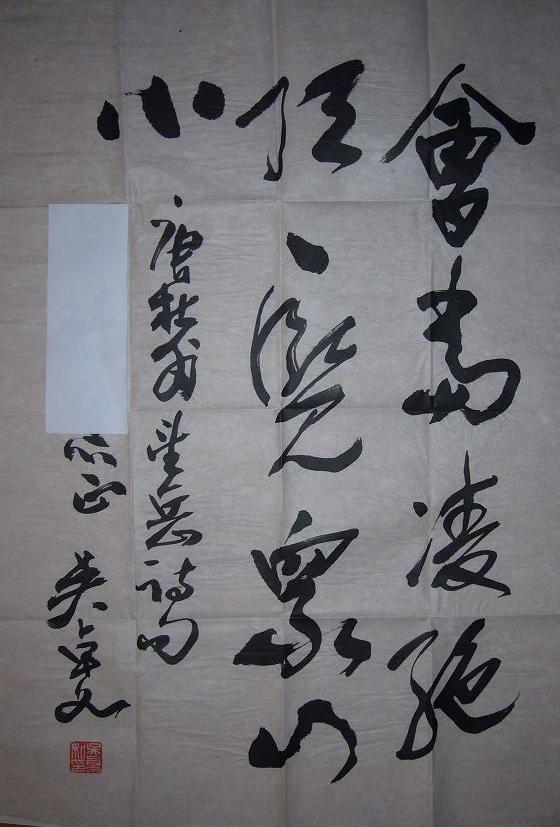 會當凌絕
頂一覽眾山
小
唐杜甫望岳詩句
正 吴